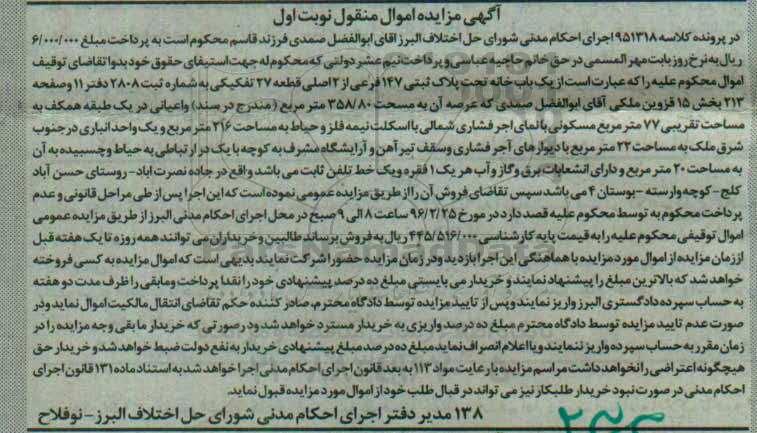 آگهی مزایده اموال منقول نوبت اول
در پرونده کلاسه ۹۵۱۳۱۸ اجرای احکام مدنی شورای حل اختلاف البرز اقای ابوالفضل صمدی فرزند قاسم محکوم است به پرداخت مبلغ ۶/۰۰۰/۰۰۰
ریال به نرخ روز بابت مهر المسمی در حق خانم حاجیه عباسی و پرداخت نیم عشر دولتی که محکوم له جهت استیفای حقوق خود بدوا تقاضای توقیف
اموال محکوم علیه را که عبارت است از یک باب خانه تحت پلاک ثبتی ۱۴۷ فرعی از ۲ اصلی قطعه ۲۷ تفکیکی به شماره ثبت ۲۸۰۸ دفتر ۱۱ وصفحه
۲۱۳ بخش ۱۵ قزوین ملکی آقای ابوالفضل صمدی که عرصه آن به مسحت ۳۵۸/۸۰ متر مربع (مندرج در سند) واعیانی در یک طبقه همکف به
مساحت تقریبی ۷۷ متر مربع مسکونی با نمای اجر فشاری شمالی با اسکلت نیمه فلز و حیاط به مساحت ۲۱۶ متر مربع و یک واحد انباری در جنوب
شرق ملک به مساحت ۲۲ متر مربع با دیوارهای آجر فشاری وسقف تیر آهن و آرایشگاه مشرف به کوچه با یک در ارتباطی به حیاط وچسبیده به آن
به مساحت ۲۰ متر مربع و دارای انشعابات برق وگاز و آب هر یک ۱ فقره و یک خط تلفن ثابت می باشد واقع در جاده نصرت اباد- روستای حسن آباد
کلج - کوچه وارسته - بوستان ۴ می باشد سپس تقاضای فروش آن را از طریق مزایده عمومی نموده است که این اجرا پس از طی مراحل قانونی و عدم
پرداخت محکوم به توسط محکوم علیه قصد دارد در مورخ ۹۶/۲/۲۵ ساعت ۸ الی ۹ صبح در محل اجرای احکام مدنی البرز از طریق مزایده عمومی
اموال توقیفی محکوم علیه را به قیمت پایه کارشناسی ۴۴۵/۵۱۶/۰۰۰ ریال به فروش برساند طالبین و خریداران می توانند همه روزه تا یک هفته قبل
از زمان مزایده از اموال مورد مزایده با هماهنگی این اجرا بازدید ودر زمان مزایده حضورا شرکت نمایند بدیهی است که اموال مزایده به کسی فروخته
خواهد شد که بالاترین مبلغ را پیشنهاد نمایند و خریدار می بایستی مبلغ ده درصد پیشنهادی خود را نقدا پرداخت ومابقی را ظرف مدت دو هفته
به حساب سپرده دادگستری البرز واریز نمایند و پس از تایید مزایده توسط دادگاه محترم، صادر کننده حکم تقاضای انتقال مالکیت اموال نماید ودر
صورت عدم تایید مزایده توسط دادگاه محترم مبلغ ده درصد واریزی به خریدار مسترد خواهد شد ود رصورتی که خریدار مابقی وجه مزایده را در
زمان مقرر به حساب سپرده واریز ننمایند ویا اعلام انصراف نماید مبلغ ده درصد مبلغ پیشنهادی خریدار به نفع دولت ضبط خواهد شد و خریدار حق
هیچگونه اعتراضی را نخواهد داشت مراسم مزایده با رعایت مواد ۱۱۳ به بعد قانون اجرای احکام مدنی اجرا خواهد شد به استناد ماده ۱۳۱ قانون اجرای
احکام مدنی در صورت نبود خریدار طلبکار نیز می تواند در قبال طلب خود از اموال مورد مزایده قبول نماید.
۱۳۸ مدیر دفتر اجرای احکام مدنی شورای حل اختلاف البرز - نوفلاح